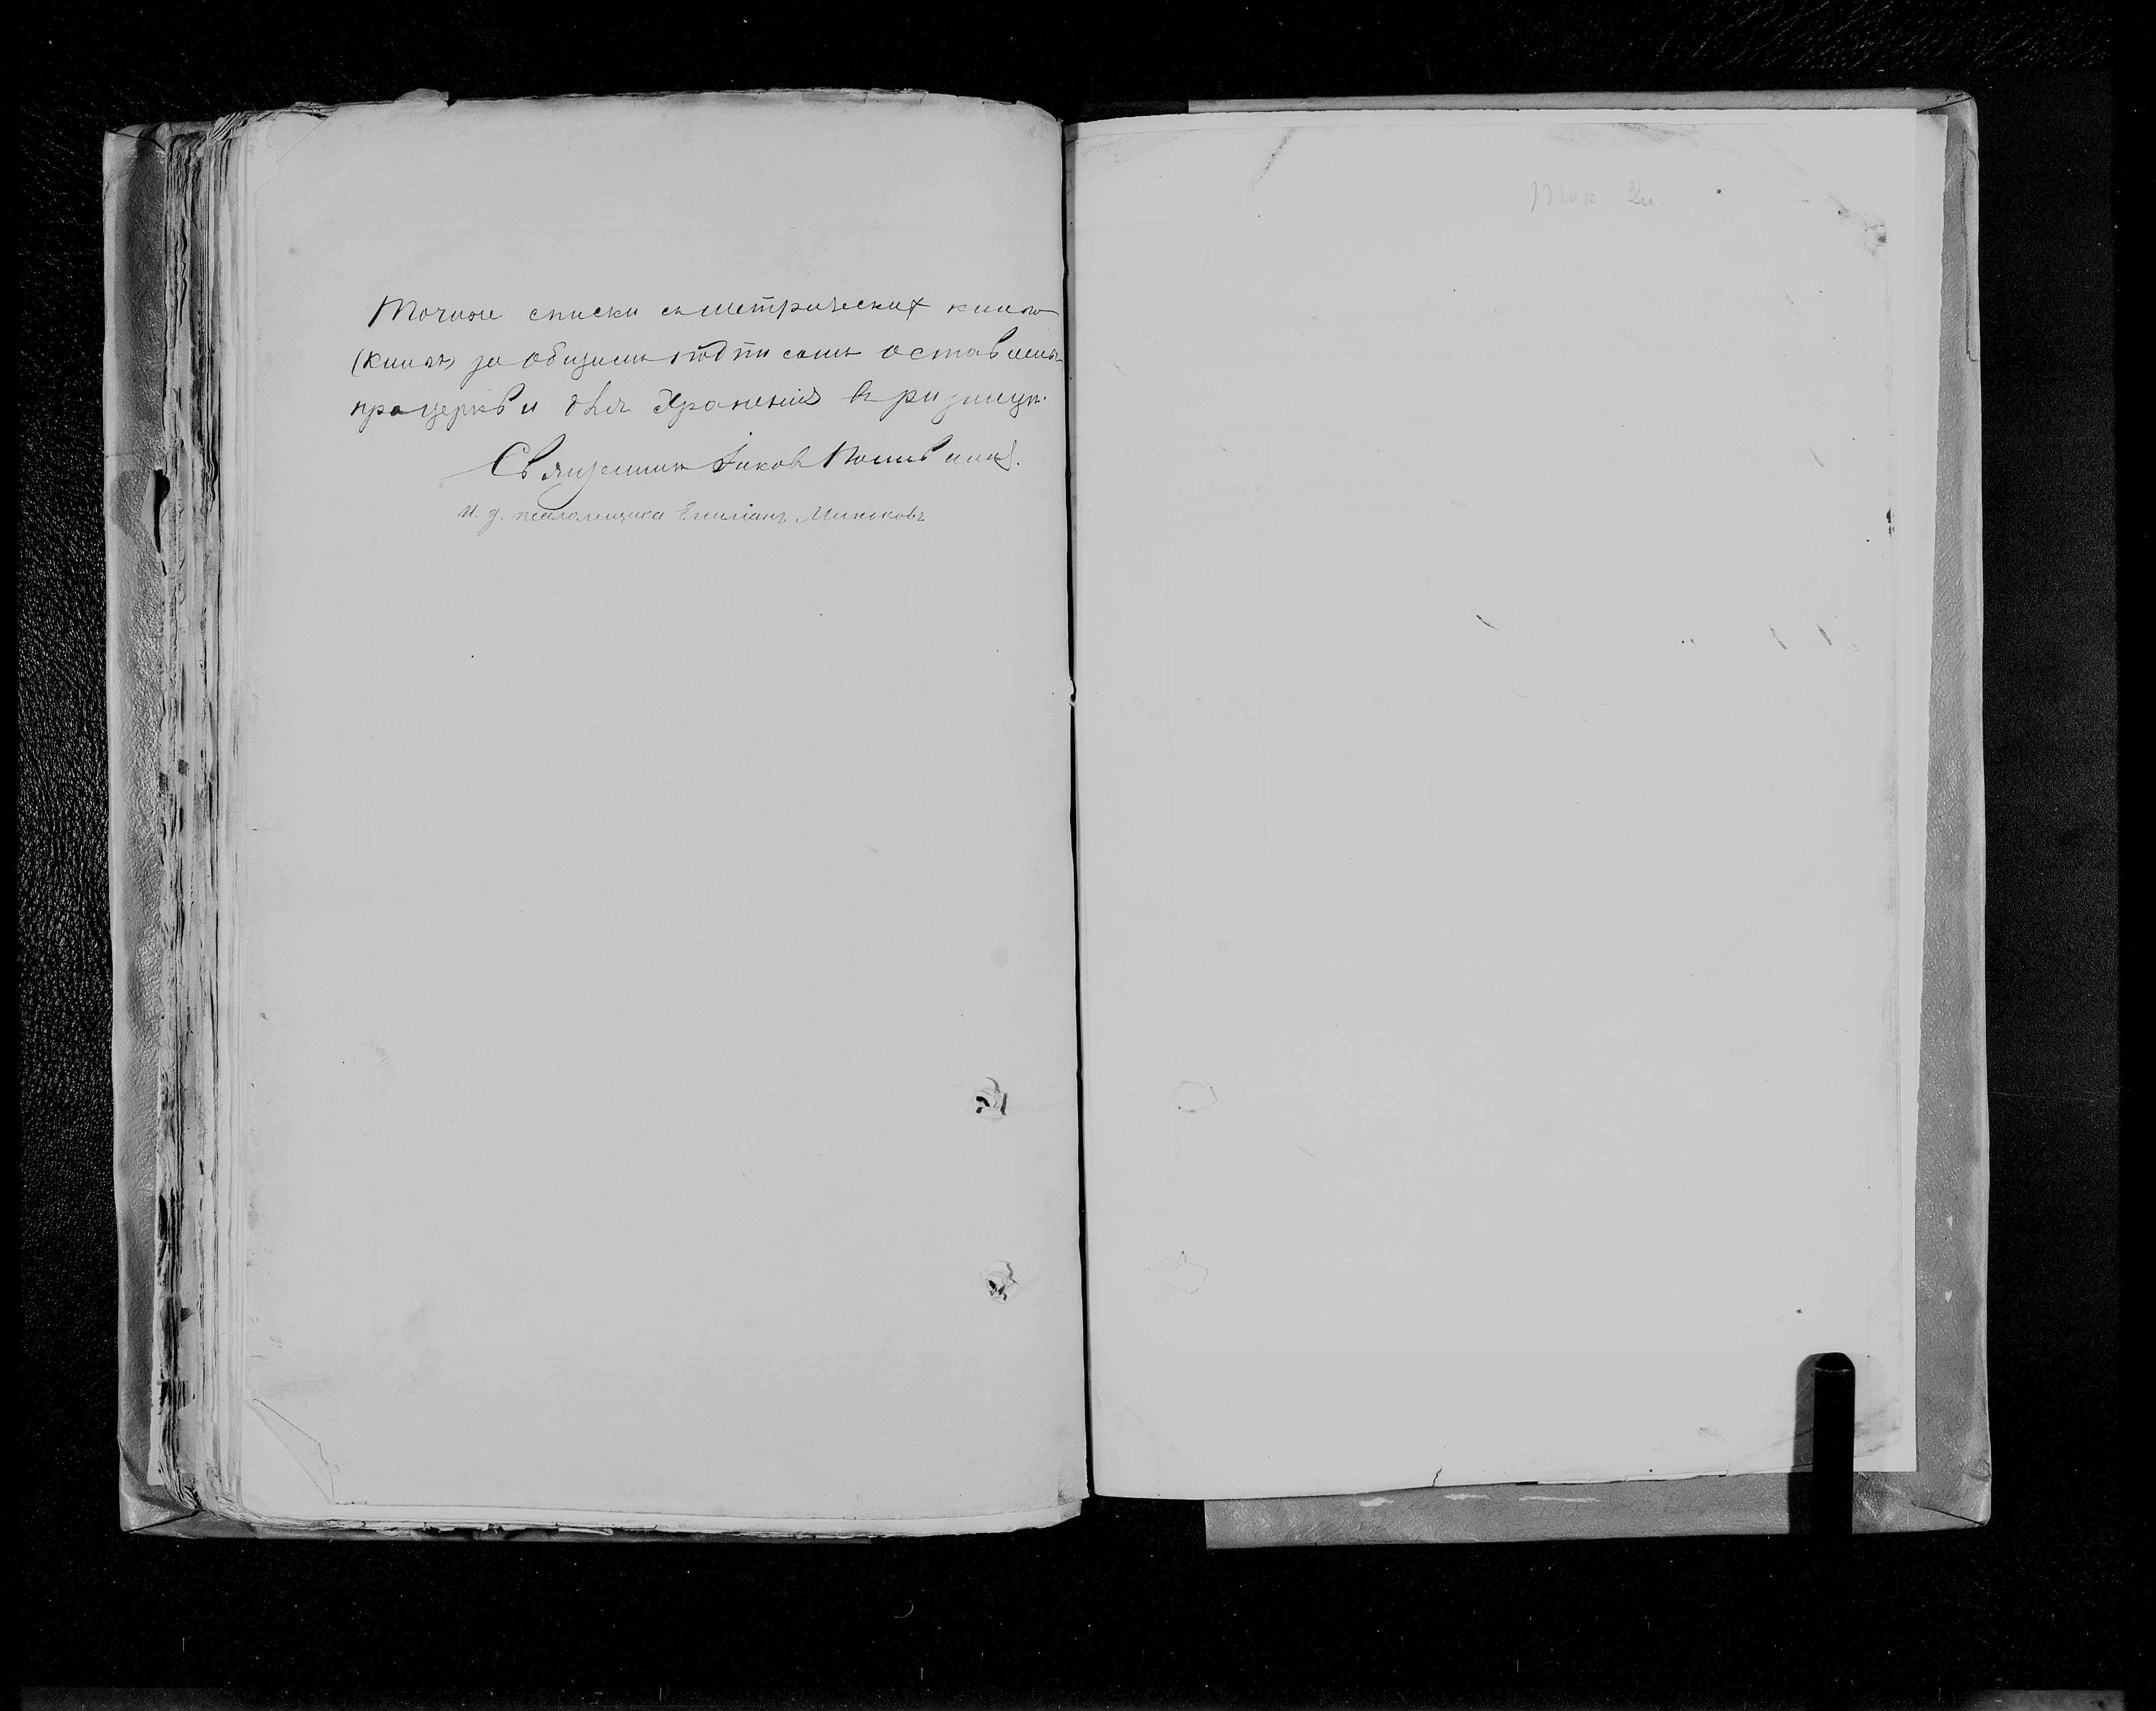 Точнои списки съ метрических книгъ
(книгъ) за общимъ подписомъ оставлены
при церкви для Храненія въ ризницѣ.
Священникъ Іаковъ
И. д. псаломщика Емиліанъ Миньковъ